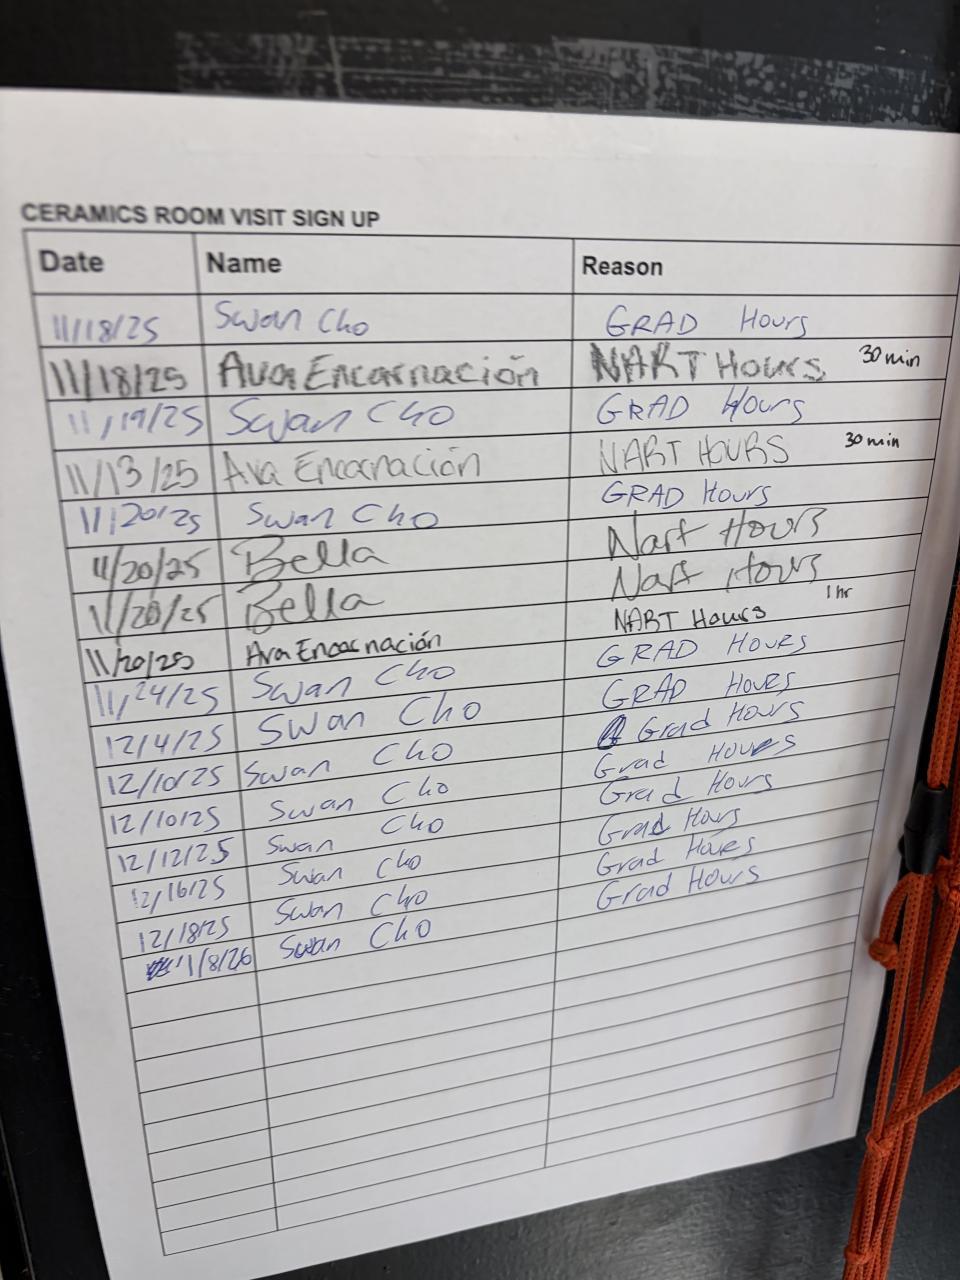 CERAMICS ROOM VISIT SIGN UP
Date Name Reason
11/18/25 Swan Cho GRAD Hours
11/18/25 Ava Encarnación NART Hours 30 min
11/19/25 Swan Cho GRAD Hours
11/13/25 Ava Encarnación NART HOURS 30 min
11/20/25 Swan Cho GRAD Hours
4/20/25 Bella Nart Hours
11/20/25 Bella Nart Hours
11/20/25 Ava Encarnación NART Hours 1 hr
11/24/25 Swan Cho GRAD HOURS
12/4/25 Swan Cho GRAD HOURS
12/10/25 Swan Cho Grad Hours
12/10/25 Swan Cho Grad Hours
12/12/25 Swan Cho Grad Hours
12/16/25 Swan Cho Grad Hours
12/18/25 Swan Cho Grad Hours
1/8/26 Swan Cho Grad Hours